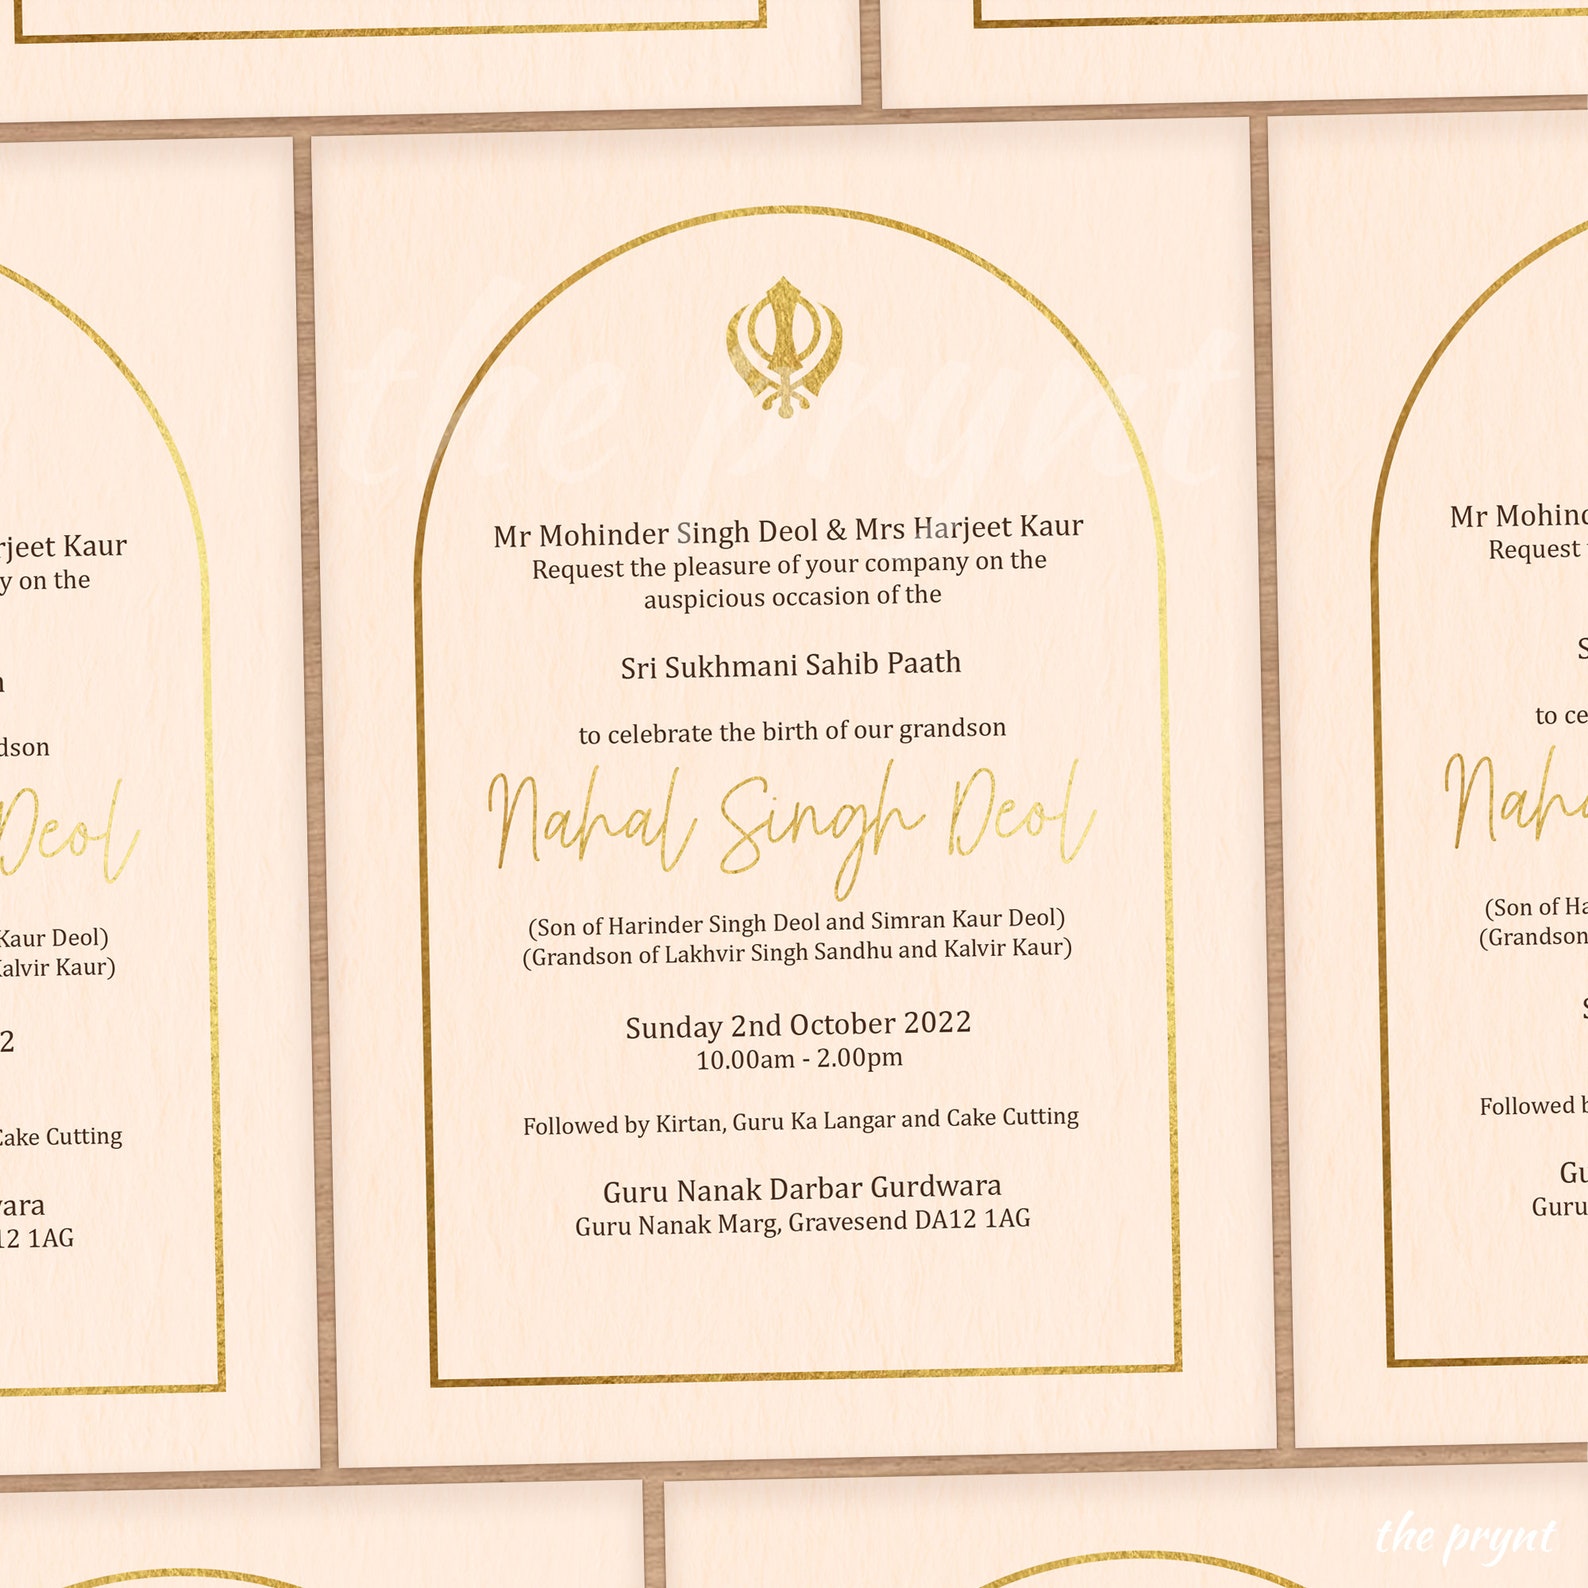 the prynt
Mr Mohinder Singh Deol & Mrs Harjeet Kaur
Request the pleasure of your company on the
auspicious occasion of the
Sri Sukhmani Sahib Paath
to celebrate the birth of our grandson
Nahal Singh Deol
(Son of Harinder Singh Deol and Simran Kaur Deol)
(Grandson of Lakhvir Singh Sandhu and Kalvir Kaur)
Sunday 2nd October 2022
10.00am - 2.00pm
Followed by Kirtan, Guru Ka Langar and Cake Cutting
Guru Nanak Darbar Gurdwara
Guru Nanak Marg, Gravesend DA12 1AG
rjeet Kaur
y on the
dson
Deol
Kaur Deol)
Kalvir Kaur)
2
Cake Cutting
wara
12 1AG
Mr Mohind
Request
S
to ce
Naha
(Son of Ha
(Grandson
S
Followed b
Gu
Guru
the prynt